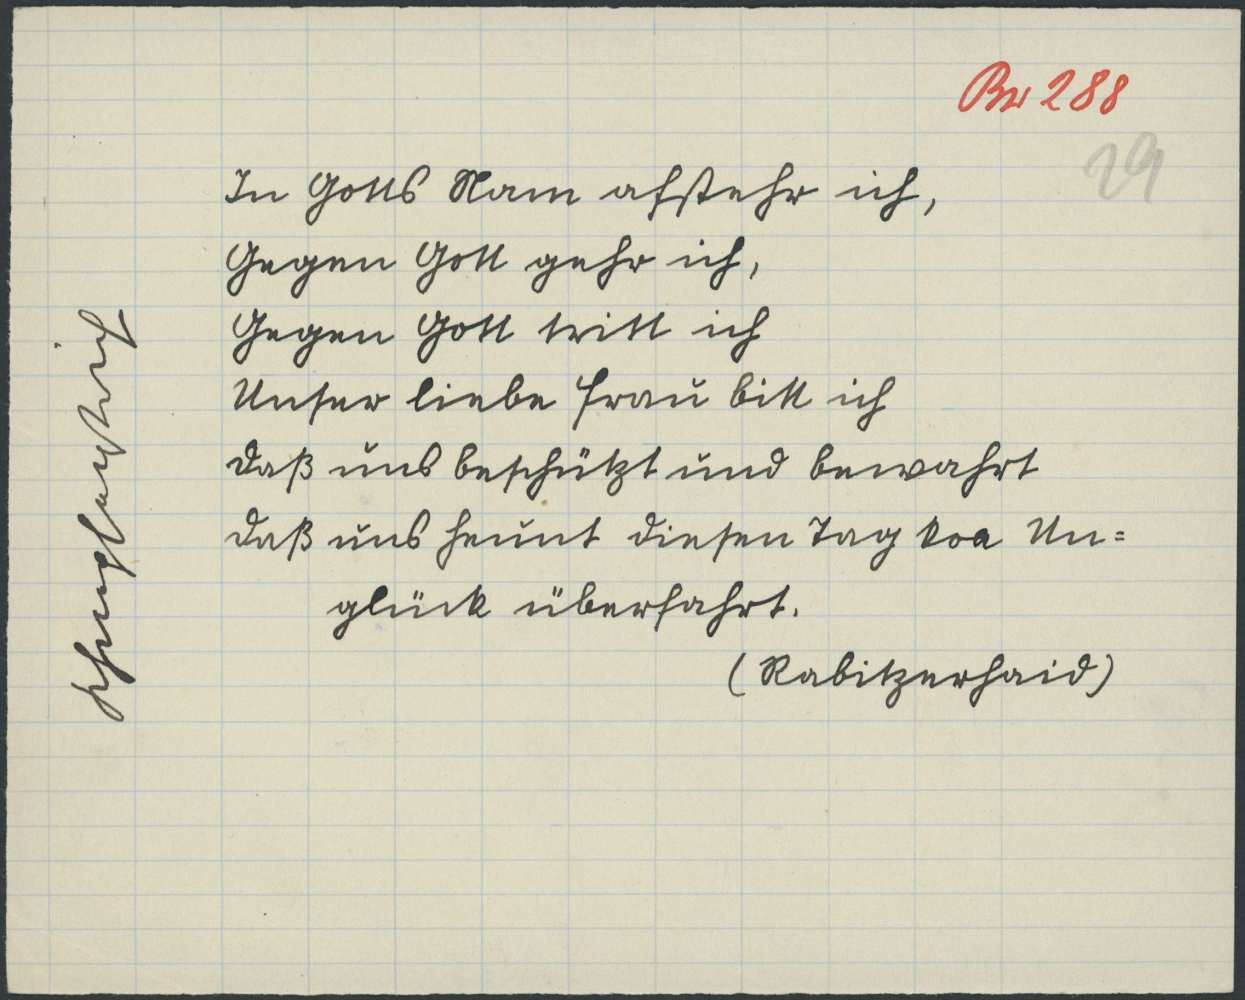 Br 288
29
In Gotts Nam afstehr ich,
Gegen Gott gehr ich,
Gegen Gott tritt ich
Unser liebe Frau bitt ich
daß uns beschützt und bewahrt
daß uns heunt diesen Tag koa Un=
glück überfahrt.
(Rabitzerhaid)